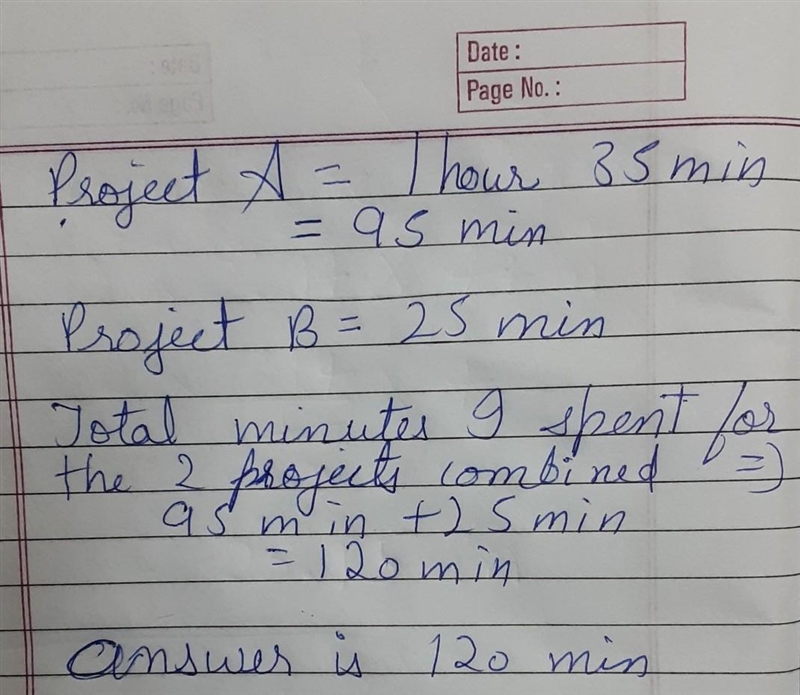 Date :
Page No. :
Project A = 1 hour 35 min
= 95 min
Project B = 25 min
Total minutes I spent for
the 2 projects combined =>
95 min + 25 min
= 120 min
Answer is 120 min